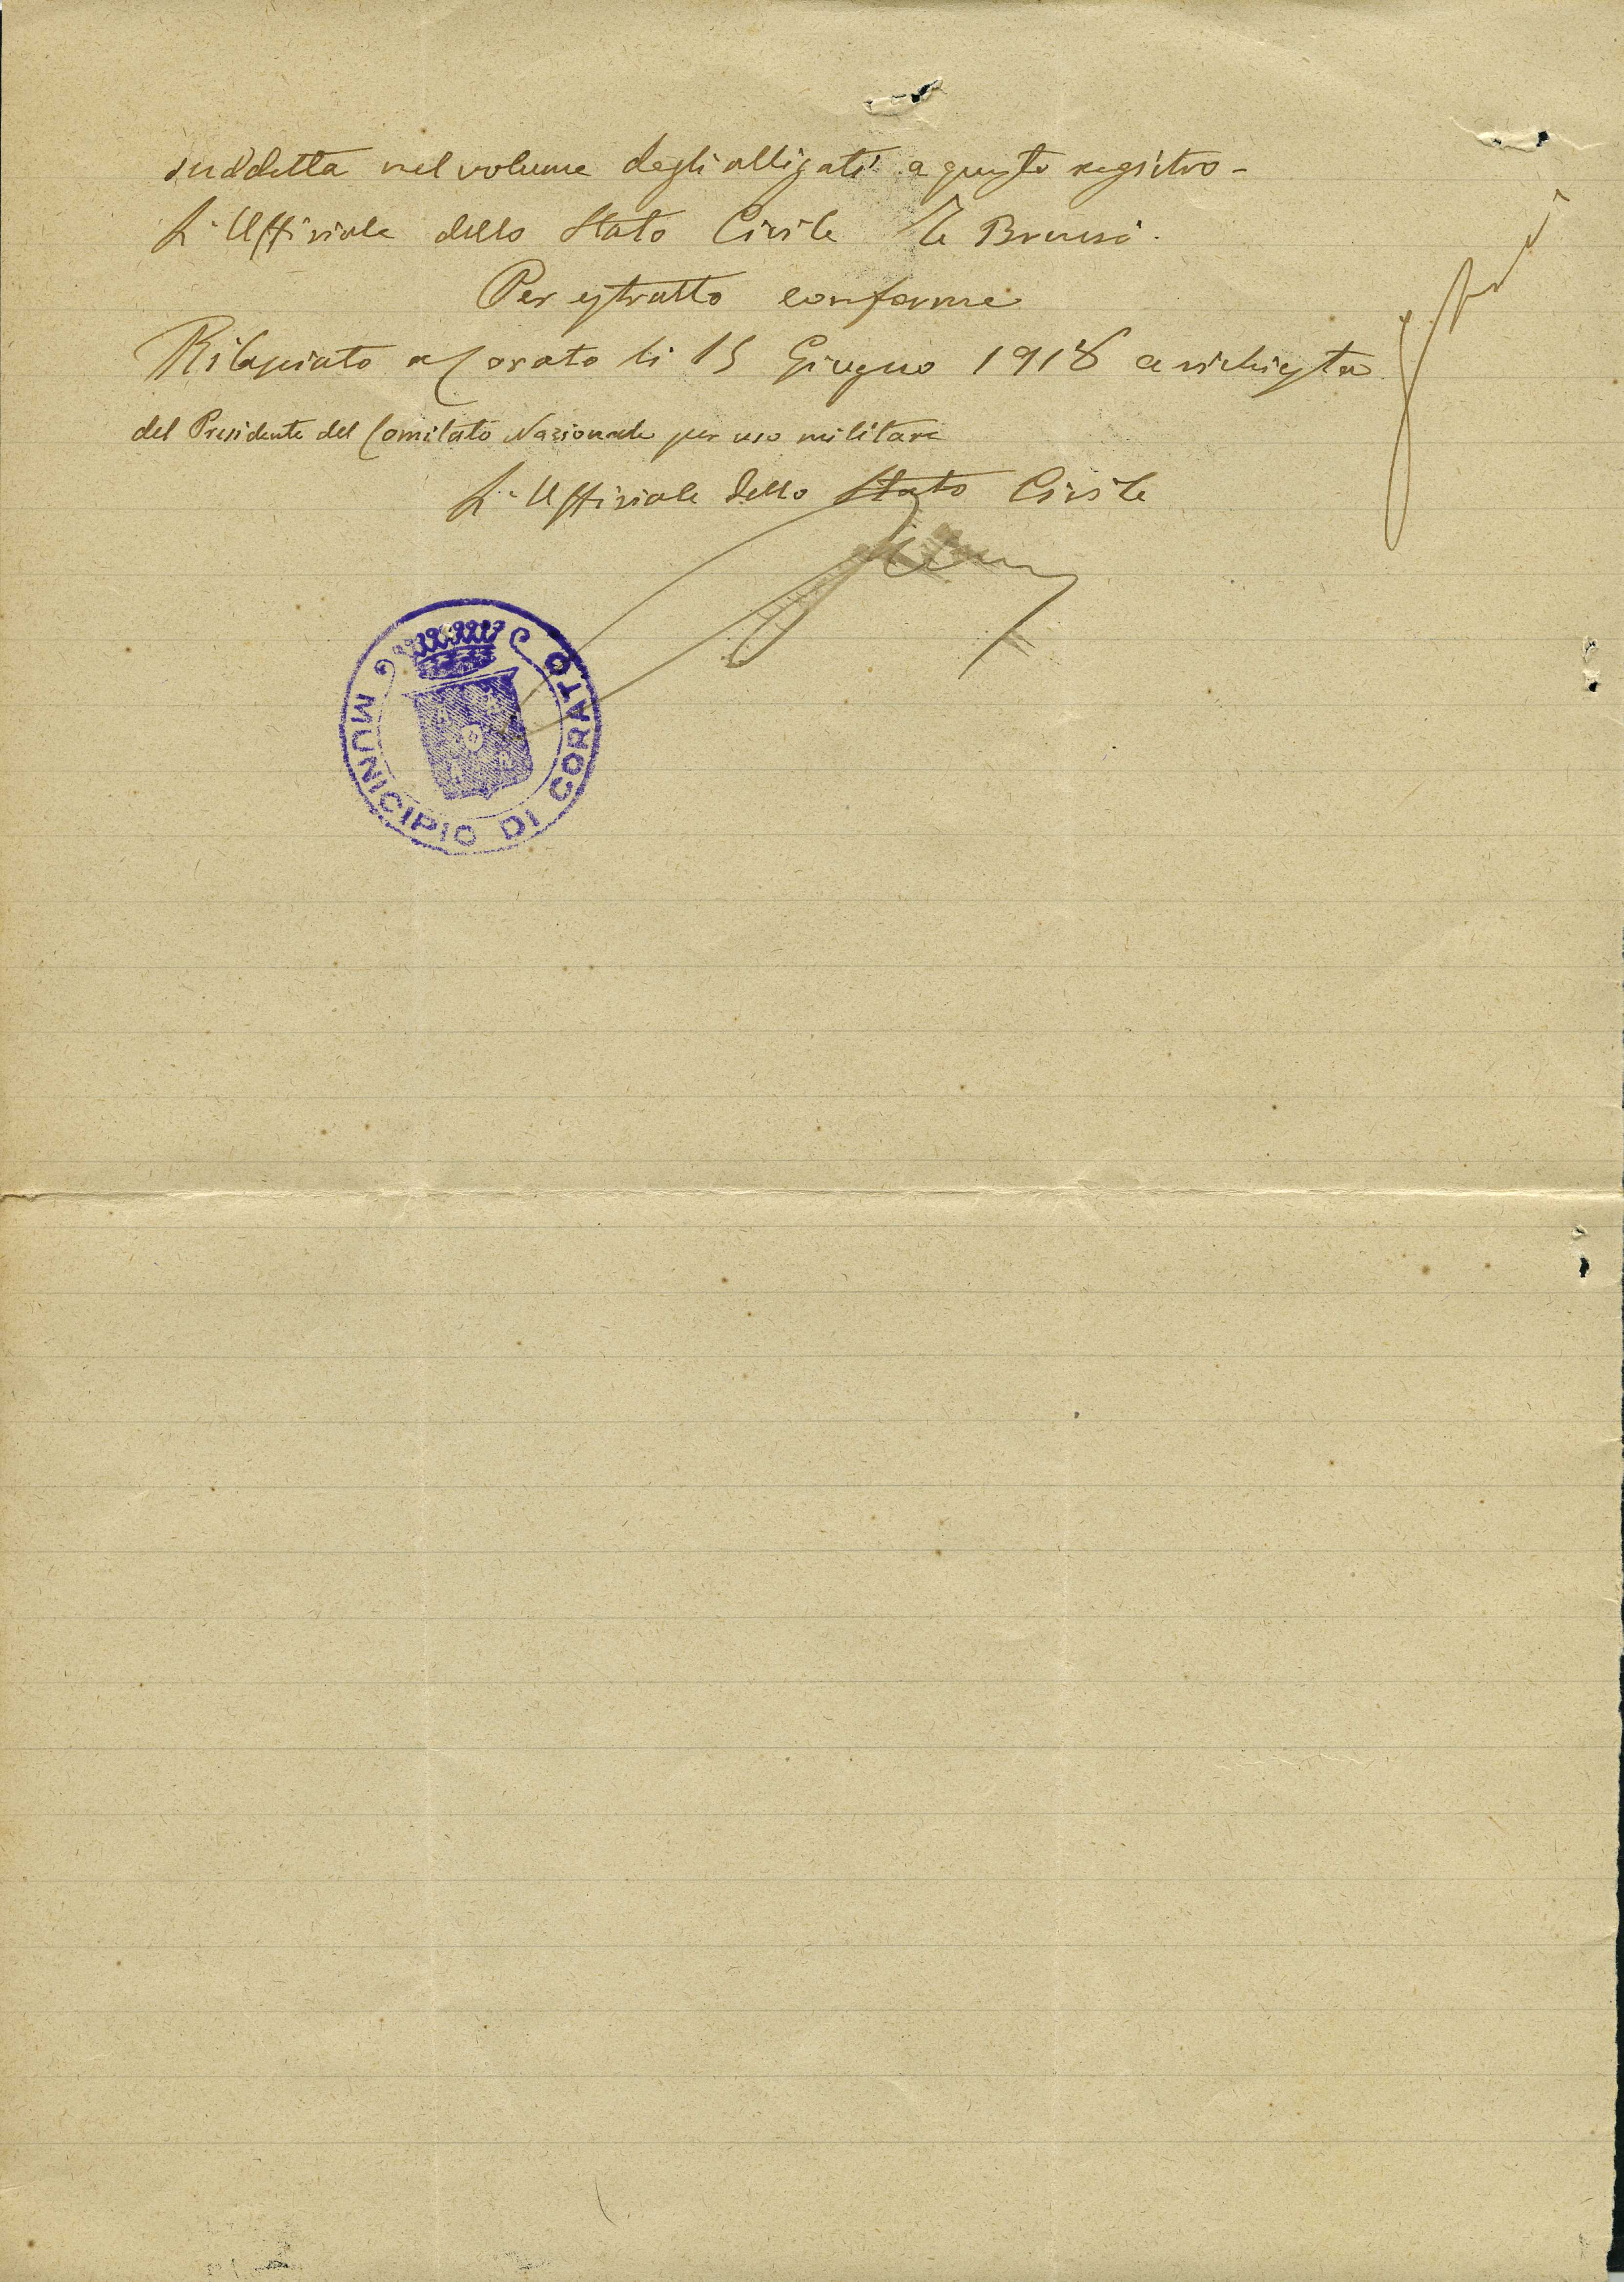 suddetta nel volume degli alligati a questo registro -
L'Uffiziale dello Stato Civile
Per estratto conforme
Rilasciato a Corato li 15 Giugno 1918 a richiesta
del Presidente del Comitato Nazionale per uso militare
L'Uffiziale dello Stato Civile
MUNICIPIO DI CORATO